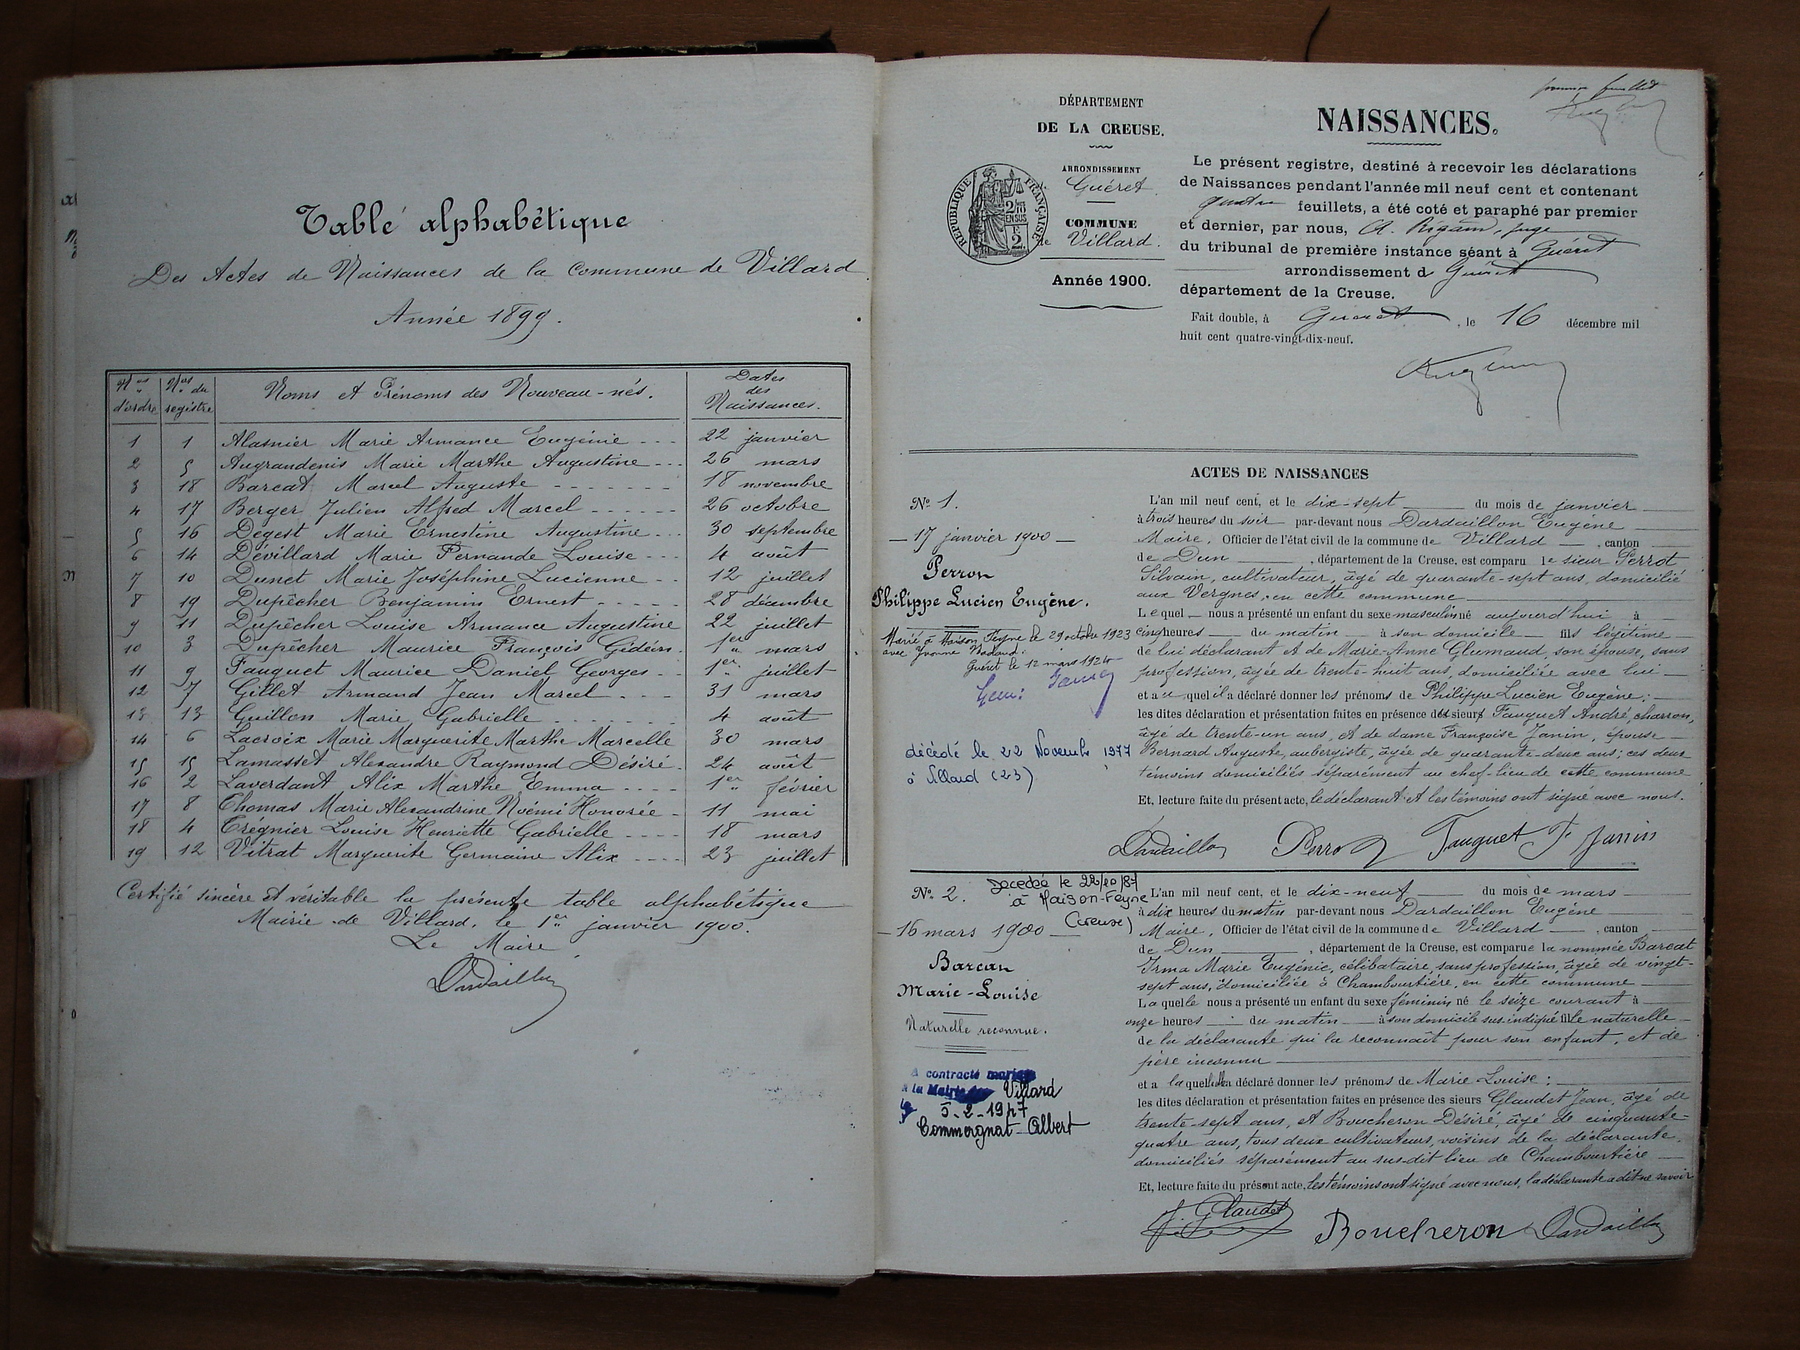 Table alphabétique
Des Actes de Naissances de la Commune de Villard
Année 1899.
Nos d'ordre
Nos du registre
Noms et Prénoms des Nouveau-nés.
Dates des Naissances.
1 1 Alasnier Marie Armance Eugénie --- 22 janvier
2 5 Augrandenis Marie Marthe Augustine --- 26 mars
3 18 Barcat Marcel Auguste ------- 18 novembre
4 17 Berger Julien Alfred Marcel ----- 26 octobre
5 16 Degest Marie Ernestine Augustine --- 30 septembre
6 14 Devillard Marie Fernande Louise --- 4 août
7 10 Dunet Marie Joséphine Lucienne -- 12 juillet
8 19 Dupêcher Benjamin Ernest ----- 28 décembre
9 11 Dupêcher Louise Armance Augustine 22 juillet
10 3 Dupêcher Maurice François Gédéon. 1er mars
11 9 Fauquet Maurice Daniel Georges --- 1er juillet
12 7 Gillet Armand Jean Marcel ---- 31 mars
13 13 Guillon Marie Gabrielle ------- 4 août
14 6 Lacroix Marie Marguerite Marthe Marcelle 30 mars
15 15 Lamasset Alexandre Raymond Désiré - 24 août
16 2 Laverdant Alix Marthe Emma ---- 1er février
17 8 Thomas Marie Alexandrine Noémi Honorée -- 11 mai
18 4 Trégnier Louise Henriette Gabrielle ---- 18 mars
19 12 Vitrat Marguerite Germaine Alix ---- 23 juillet
Certifié sincère et véritable la présente table alphabétique
Mairie de Villard, le 1er janvier 1900.
Le Maire
Dardaillon
DÉPARTEMENT
DE LA CREUSE.
ARRONDISSEMENT
Guéret
COMMUNE
de Villard.
Année 1900.
RÉPUBLIQUE FRANÇAISE
premier feuillet
NAISSANCES.
Le présent registre, destiné à recevoir les déclarations
de Naissances pendant l'année mil neuf cent et contenant
quatre feuillets, a été coté et paraphé par premier
et dernier, par nous, A. Rigaud, juge
du tribunal de première instance séant à Guéret
arrondissement de Guéret
département de la Creuse.
Fait double, à Guéret, le 16 décembre mil
huit cent quatre-vingt-dix-neuf.
ACTES DE NAISSANCES
No 1.
17 janvier 1900
Perron
Philippe Lucien Eugène.
Marié à Maison Feyne le 29 octobre 1923
avec Yvonne Nadaud.
Guéret le 12 mars 1924
décédé le 22 Novembre 1977
à Villard (23)
L'an mil neuf cent, et le dix-sept du mois de janvier
à trois heures du soir par-devant nous Dardaillon Eugène
Maire, Officier de l'état civil de la commune de Villard, canton
de Dun, département de la Creuse, est comparu le sieur Perrot
Silvain, cultivateur, âgé de quarante-sept ans, domicilié
aux Vergnes, en cette commune
Lequel nous a présenté un enfant du sexe masculin né aujourd'hui à
cinq heures du matin à son domicile fils légitime
de lui déclarant et de Marie-Anne Glumaud, son épouse, sans
profession, âgée de trente-huit ans, domiciliée avec lui
et auquel il a déclaré donner les prénoms de Philippe Lucien Eugène;
les dites déclaration et présentation faites en présence des sieurs Fauquet André, charron,
âgé de trente-un ans, et de dame Françoise Janin, épouse
Bernard Auguste, aubergiste, âgée de quarante-deux ans; ces deux
témoins domiciliés séparément au chef-lieu de cette commune
Et, lecture faite du présent acte, le déclarant et les témoins ont signé avec nous.
Dardaillon Perron Fauquet F Janin
No 2.
Décédée le 22/10/87
à Maison-Feyne
(Creuse)
16 mars 1900
Barcan
Marie-Louise
Naturelle reconnue.
A contracté mariage
à la Mairie de Villard
le 5-2-1947
Commergnat Albert
L'an mil neuf cent, et le dix-neuf du mois de mars
à dix heures du matin par-devant nous Dardaillon Eugène
Maire, Officier de l'état civil de la commune de Villard, canton
de Dun, département de la Creuse, est comparue la nommée Barcat
Irma Marie Eugénie, célibataire, sans profession, âgée de vingt-
sept ans, domiciliée à Chambourtière, en cette commune
Laquelle nous a présenté un enfant du sexe féminin né le seize courant à
onze heures du matin à son domicile sus-indiqué fille naturelle
de la déclarante qui la reconnaît pour son enfant, et de
père inconnu
et a laquelle elle a déclaré donner les prénoms de Marie Louise;
les dites déclaration et présentation faites en présence des sieurs Glaudet Jean, âgé de
trente-sept ans, et Boucheron Désiré, âgé de cinquante-
quatre ans, tous deux cultivateurs, voisins de la déclarante,
domiciliés séparément au sus-dit lieu de Chambourtière
Et, lecture faite du présent acte, les témoins ont signé avec nous, la déclarante a dit ne savoir
J. Glaudet Boucheron Dardaillon